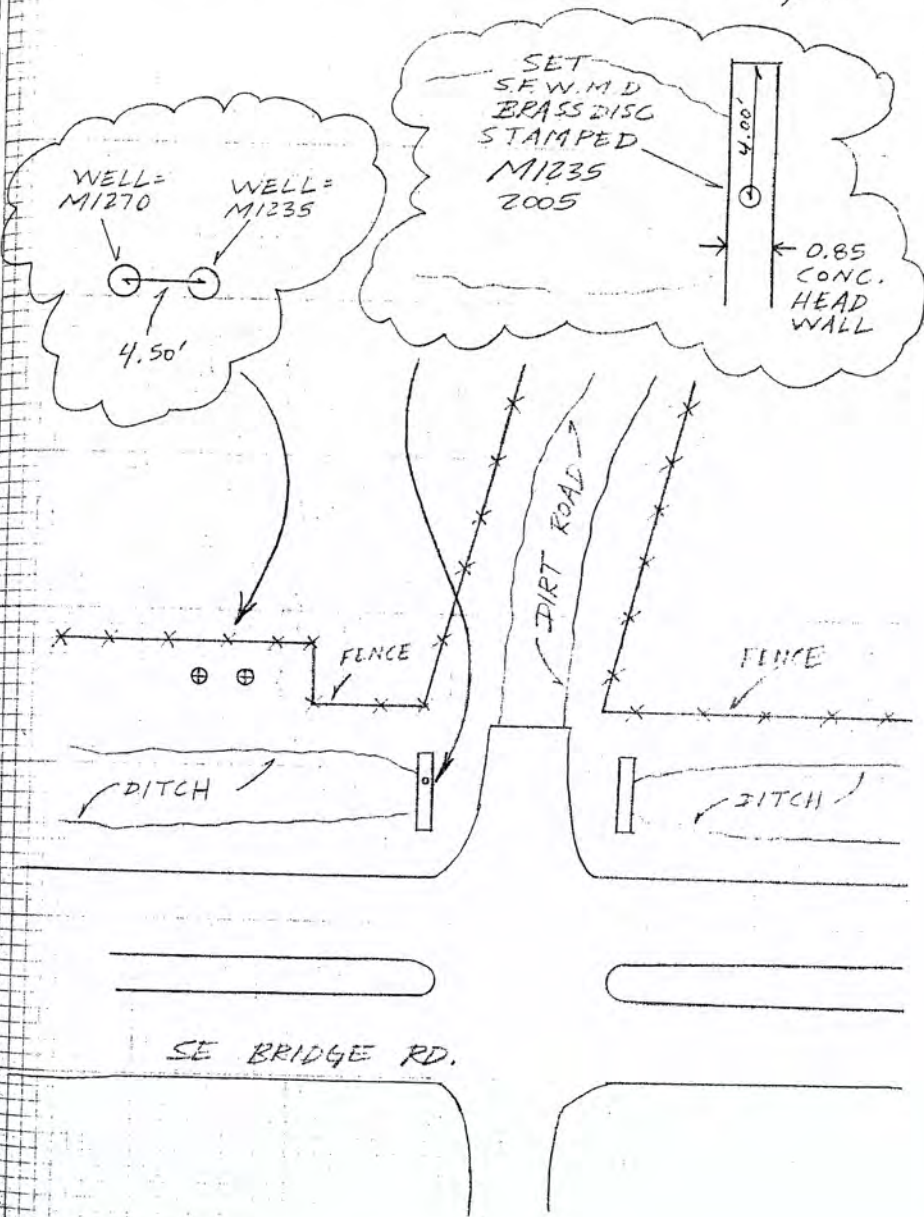 WELL=
M1270
WELL=
M1235
4.50'
SET
S.F.W.M.D
BRASS DISC
STAMPED
M1235
2005
4.00'
0.85
CONC.
HEAD
WALL
DIRT ROAD
FENCE
FENCE
DITCH
DITCH
SE BRIDGE RD.